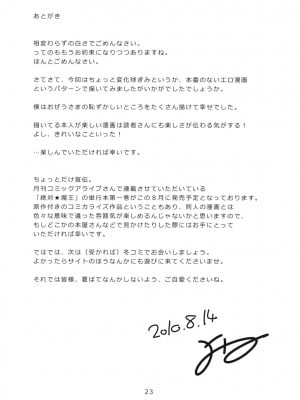 あとがき
相変わらずの白さでごめんなさい。
ってのももうお約束になりつつありますね。
ほんとごめんなさい。
さてさて、今回はちょっと変化球ぎみというか、本番のないエロ漫画
というパターンで描いてみましたがいかがでしたでしょうか。
僕はおぜうさまの恥ずかしいところをたくさん描けて幸せでした。
描いてる本人が楽しい漫画は読者さんにも楽しさが伝わる気がする!
よし、きれいなこといった!
…楽しんでいただければ幸いです。
ちょっとだけ宣伝。
月刊コミックアライブさんで連載させていただいている
「絶対★魔王」の単行本第一巻がこの8月に発売予定となっております。
原作付きのコミカライズ作品ということもあり、同人の漫画とは
色々な意味で違った雰囲気が楽しめるんじゃないかと思いますので、
もしどこかの本屋さんなどで見かけたりした際にはお手にとって
いただければ幸いです。
ではでは、次は(受かれば)冬コミでお会いしましょう。
よかったらサイトのほうなんかにも遊びに来てくださいませ。
それでは皆様、夏ばてなんかしないよう、ご自愛くださいね。
2010.8.14
23